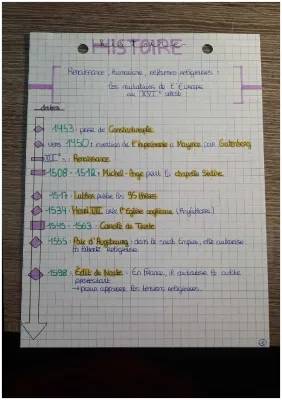 HISTOIRE
Renaissance, humanisme, réformes religieuses :
les mutations de l'Europe
au XVIe siècle
dates
1453 : prise de Constantinople
vers 1450 : invention de l'imprimerie à Mayence par Gutenberg
: Renaissance
1508 - 1512 : Michel-Ange peint la chapelle Sixtine
1517 : Luther publie les 95 thèses
1534 : Henri VIII crée l'Église anglicane (Angleterre)
1545 - 1563 : Concile de Trente
1555 : Paix d'Augsbourg : dans le Saint Empire, elle autorise
la liberté religieuse
1598 : Édit de Nantes : En France, il autorise le culte
protestant
→ pour apaiser les tensions religieuses.